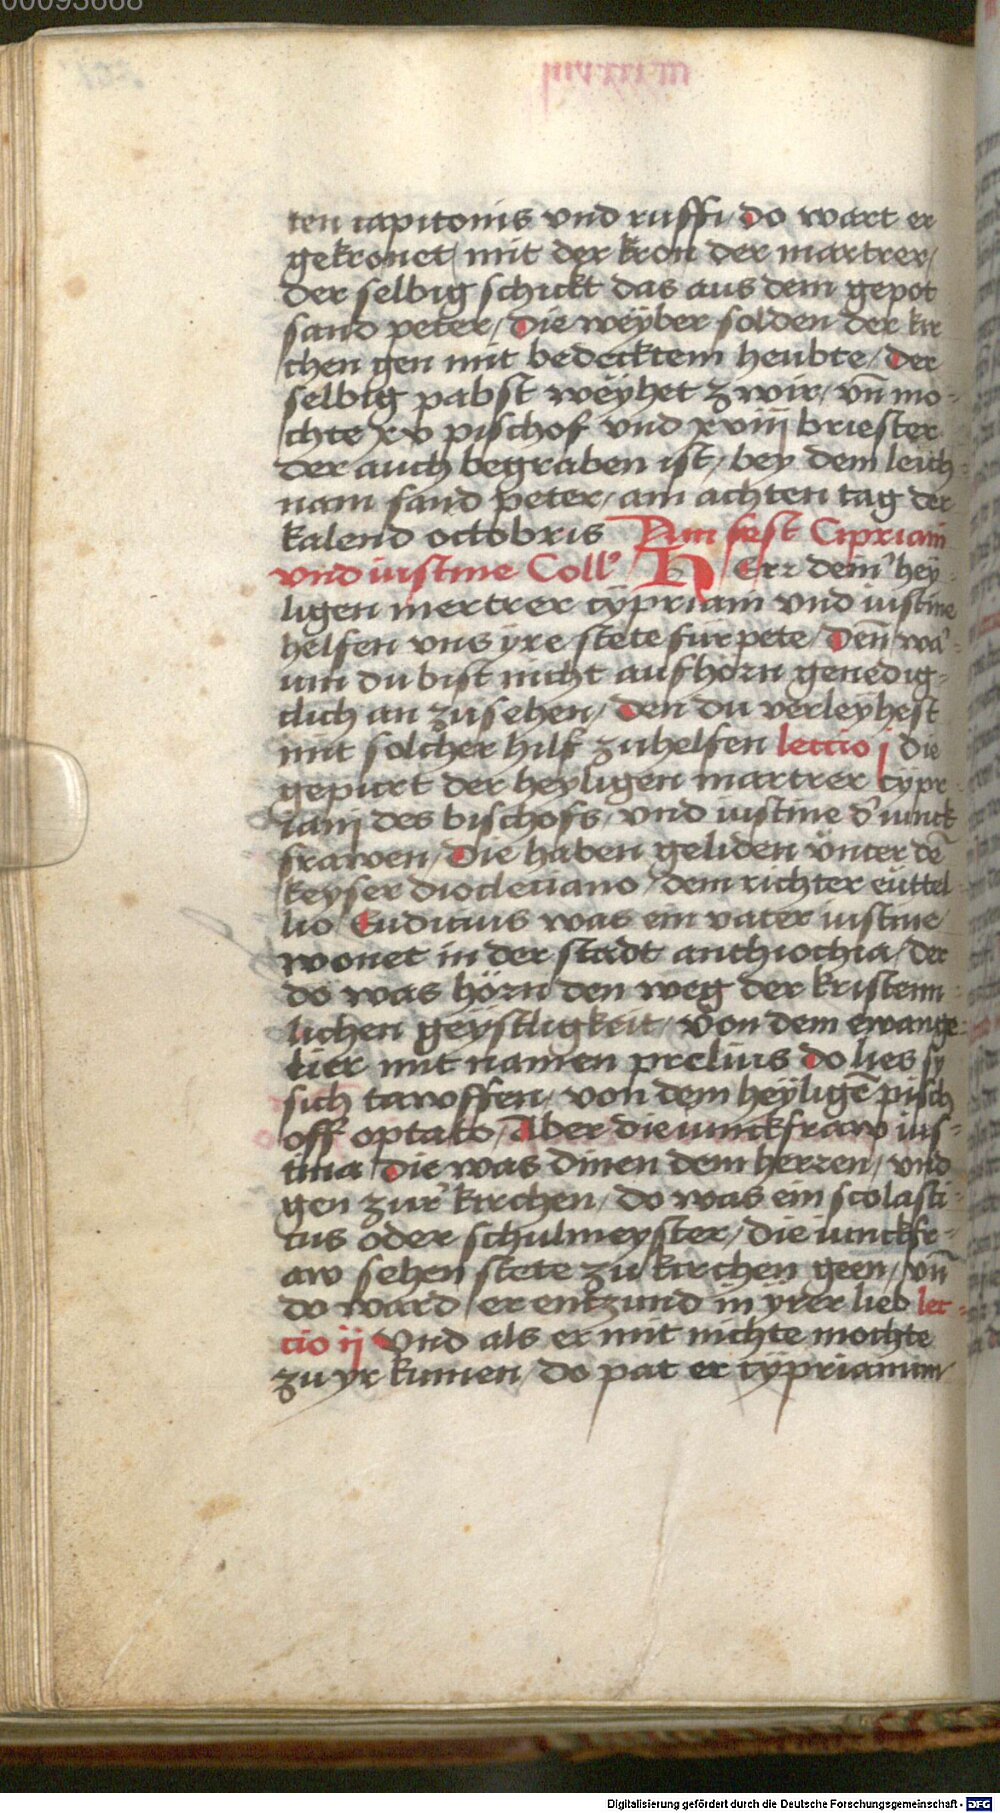 00093668
ten capitonis vnd ruffi / do wart er
gekronet / mit der kron der martrer /
der selbig schickt das aus dem gepot
sand peter / Die weyber solden der kir
chen gen mit bedecktem heubte / Der
selbig pabst weyhet zwir / vn̄ mo-
chte xv pischof vnd xviij briester
der auch begraben ist / bey dem leich-
nam sand peter / am achten tag der
kalend octobris Am fest Cipriani
vnd iustine Coll' HErr dein' hey-
ligen mertrer cypriani vnd iustine
helfen vns yre stete furpete / Den̄ wa-
um du bist nicht aufhörn genedig-
clich an zu sehen / den du verleyhest
mit solcher hilf zu helfen lectio j die
gepurt der heyligen martrer cypr-
iani des bischofs / vnd iustine d' iunck
frawen / Die haben geliden vnter dē
keyser diocleciano / dem richter euttel
lio / Eudicius was ein vater iustine /
wonet in der stadt anthiochia / der
do was hörn den weg der kristenn-
lichen geystligkeit / von dem ewange-
lier mit namen prelius do lies sy
sich tawffen / von dem heyligē pisch
off optato / Aber die iunckfraw ius-
tina / Die was dinen dem herren / vnd
gen zur kirchen / do was ein scolasti-
cus oder schulmeyster / die iunckfr-
aw sehen stete zu kirchen geen / vn̄
do ward / er entzund in yrer lieb lec-
tio ij Vnd als er mit nichte mochte
zu yr kumen / do pat er cyprianum
Digitalisierung gefördert durch die Deutsche Forschungsgemeinschaft - DFG